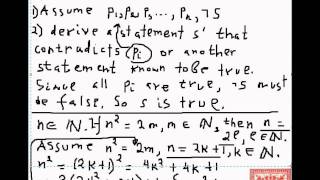 1) Assume p₁, p₂, p₃ ..., pₙ, ¬s
2) derive a statement s' that
contradicts pᵢ or another
statement known to be true.
Since all pᵢ are true, ¬s must
be false, so s is true.
n∈ℕ. If n² = 2m, m∈ℕ, then n =
2ℓ, ℓ∈ℕ.
Assume n² = 2m, n = 2k+1, k∈ℕ.
n² = (2k+1)² = 4k² + 4k+1